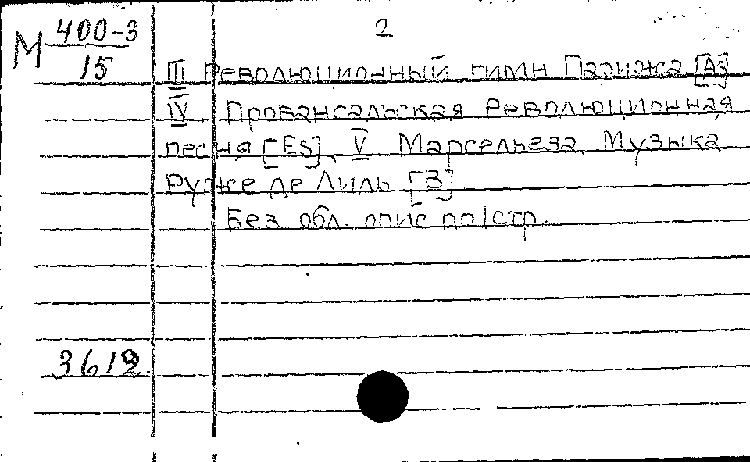 2
М 400-3
15
III Революционный гимн Парижа [As]
IV. Провансальская революционная
песня [Es]. V Марсельеза Музыка
Руже де Лиль [B]
Без обл. опис по 1 стр.
3619